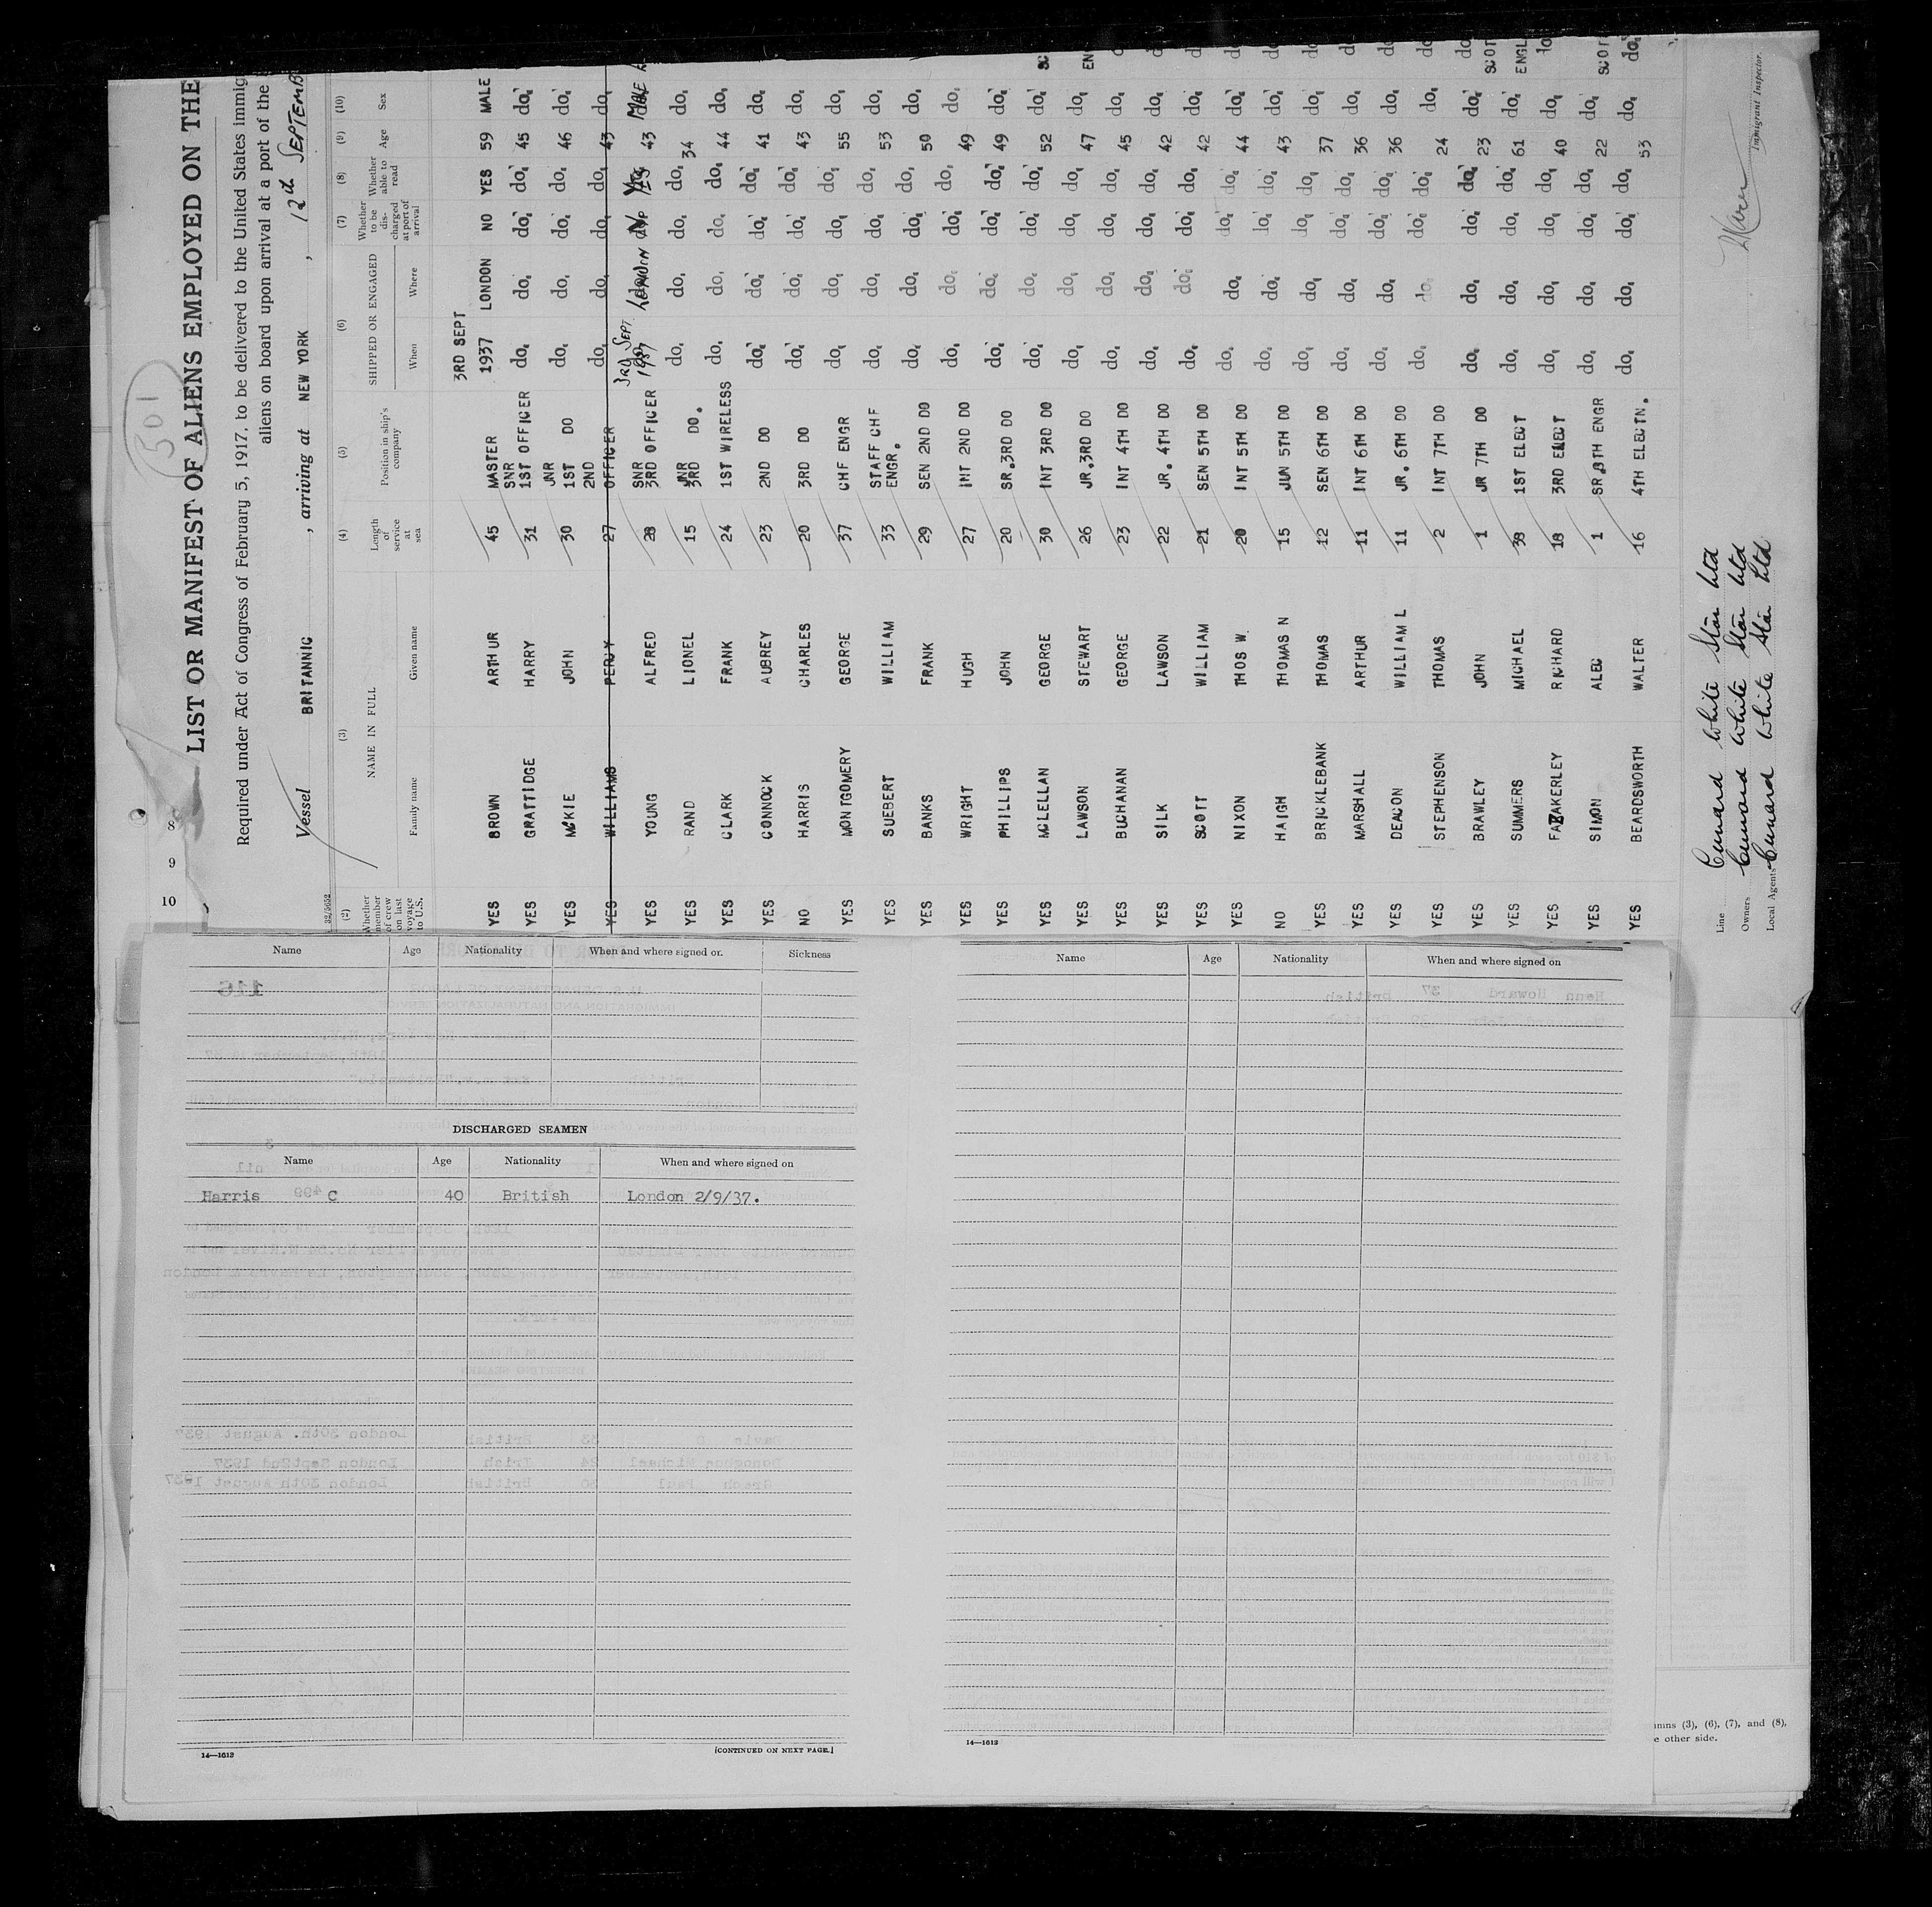 501
LIST OR MANIFEST OF ALIENS EMPLOYED ON THE
Required under Act of Congress of February 5, 1917, to be delivered to the United States immig
aliens on board upon arrival at a port of the
Vessel BRITANNIC, arriving at NEW YORK, 12th SEPTEMB
32/5652
(2) (3) (4) (5) (6) (7) (8) (9) (10)
Whether member of crew on last voyage to U.S. NAME IN FULL Family name Given name Length of service at sea Position in ship's company SHIPPED OR ENGAGED When Where Whether to be discharged at port of arrival Whether able to read Age Sex
3RD SEPT
YES BROWN ARTHUR 45 MASTER 1937 LONDON NO YES 59 MALE
YES GRATTIDGE HARRY 31 SNR 1ST OFFICER do. do. do. do. 45 do.
YES MCKIE JOHN 30 JNR 1ST DO do. do. do. do. 46 do.
YES WILLIAMS PERCY 27 2ND OFFICER do. do. do. do. 43 do.
YES YOUNG ALFRED 28 SNR 3RD OFFICER 3RD SEPT. 1937 LONDON YES 43 MALE
YES RAND LIONEL 15 JNR 3RD DO. do. do. do. do. 34 do.
YES CLARK FRANK 24 1ST WIRELESS do. do. do. do. 44 do.
YES CONNOCK AUBREY 23 2ND DO do. do. do. do. 41 do.
NO HARRIS CHARLES 20 3RD DO do. do. do. do. 43 do.
YES MONTGOMERY GEORGE 37 CHF ENGR do. do. do. do. 55 do.
YES SUEBERT WILLIAM 33 STAFF CHF ENGR. do. do. do. do. 53 do.
YES BANKS FRANK 29 SEN 2ND DO do. do. do. do. 50 do.
YES WRIGHT HUGH 27 INT 2ND DO do. do. do. do. 49 do.
YES PHILLIPS JOHN 20 SR.3RD DO do. do. do. do. 49 do.
YES MCLELLAN GEORGE 30 INT 3RD DO do. do. do. do. 52 do. SC
YES LAWSON STEWART 26 JR.3RD DO do. do. do. do. 47 do. EN
YES BUCHANAN GEORGE 23 INT 4TH DO do. do. do. do. 45 do.
YES SILK LAWSON 22 JR. 4TH DO do. do. do. do. 42 do.
YES SCOTT WILLIAM 21 SEN 5TH DO do. do. do. do. 42 do.
YES NIXON THOS W. 20 INT 5TH DO do. do. do. do. 44 do.
NO HAIGH THOMAS N 15 JUN 5TH DO do. do. do. do. 43 do.
YES BRICKLEBANK THOMAS 12 SEN 6TH DO do. do. do. do. 37 do.
YES MARSHALL ARTHUR 11 INT 6TH DO do. do. do. do. 36 do.
YES DEACON WILLIAM L 11 JR. 6TH DO do. do. do. do. 36 do.
YES STEPHENSON THOMAS 2 INT 7TH DO do. do. do. do. 24 do. do
YES BRAWLEY JOHN 1 JR 7TH DO do. do. do. do. 23 do. SCOT
YES SUMMERS MICHAEL 38 1ST ELECT do. do. do. do. 61 do. ENGL
YES FAZAKERLEY RICHARD 18 3RD ELECT do. do. do. do. 40 do. do
YES SIMON ALEC 1 SR.8TH ENGR do. do. do. do. 22 do. SCOT
YES BEARDSWORTH WALTER 16 4TH ELECTN. do. do. do. do. 53 do. do.
Line Cunard White Star Ltd
Owners Cunard White Star Ltd
Local Agents Cunard White Star Ltd
Immigrant Inspector.
8
9
10
Name Age Nationality When and where signed on Sickness
DISCHARGED SEAMEN
Name Age Nationality When and where signed on
Harris C 40 British London 2/9/37.
14—1613
[CONTINUED ON NEXT PAGE.]
Name Age Nationality When and where signed on
14—1613
mns (3), (6), (7), and (8),
e other side.